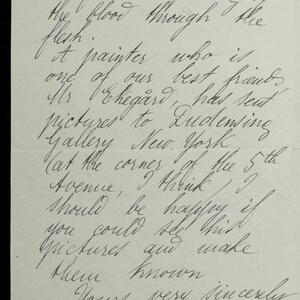 the blood through the
flesh.
A painter who is
one of our best friends,
Mr Ekegård, has sent
pictures to Dudensing
Gallery New-York
(at the corner of the 5th
Avenue, I think, I
should be happy if
you could see his
pictures and make
them known
Yours very sincerely